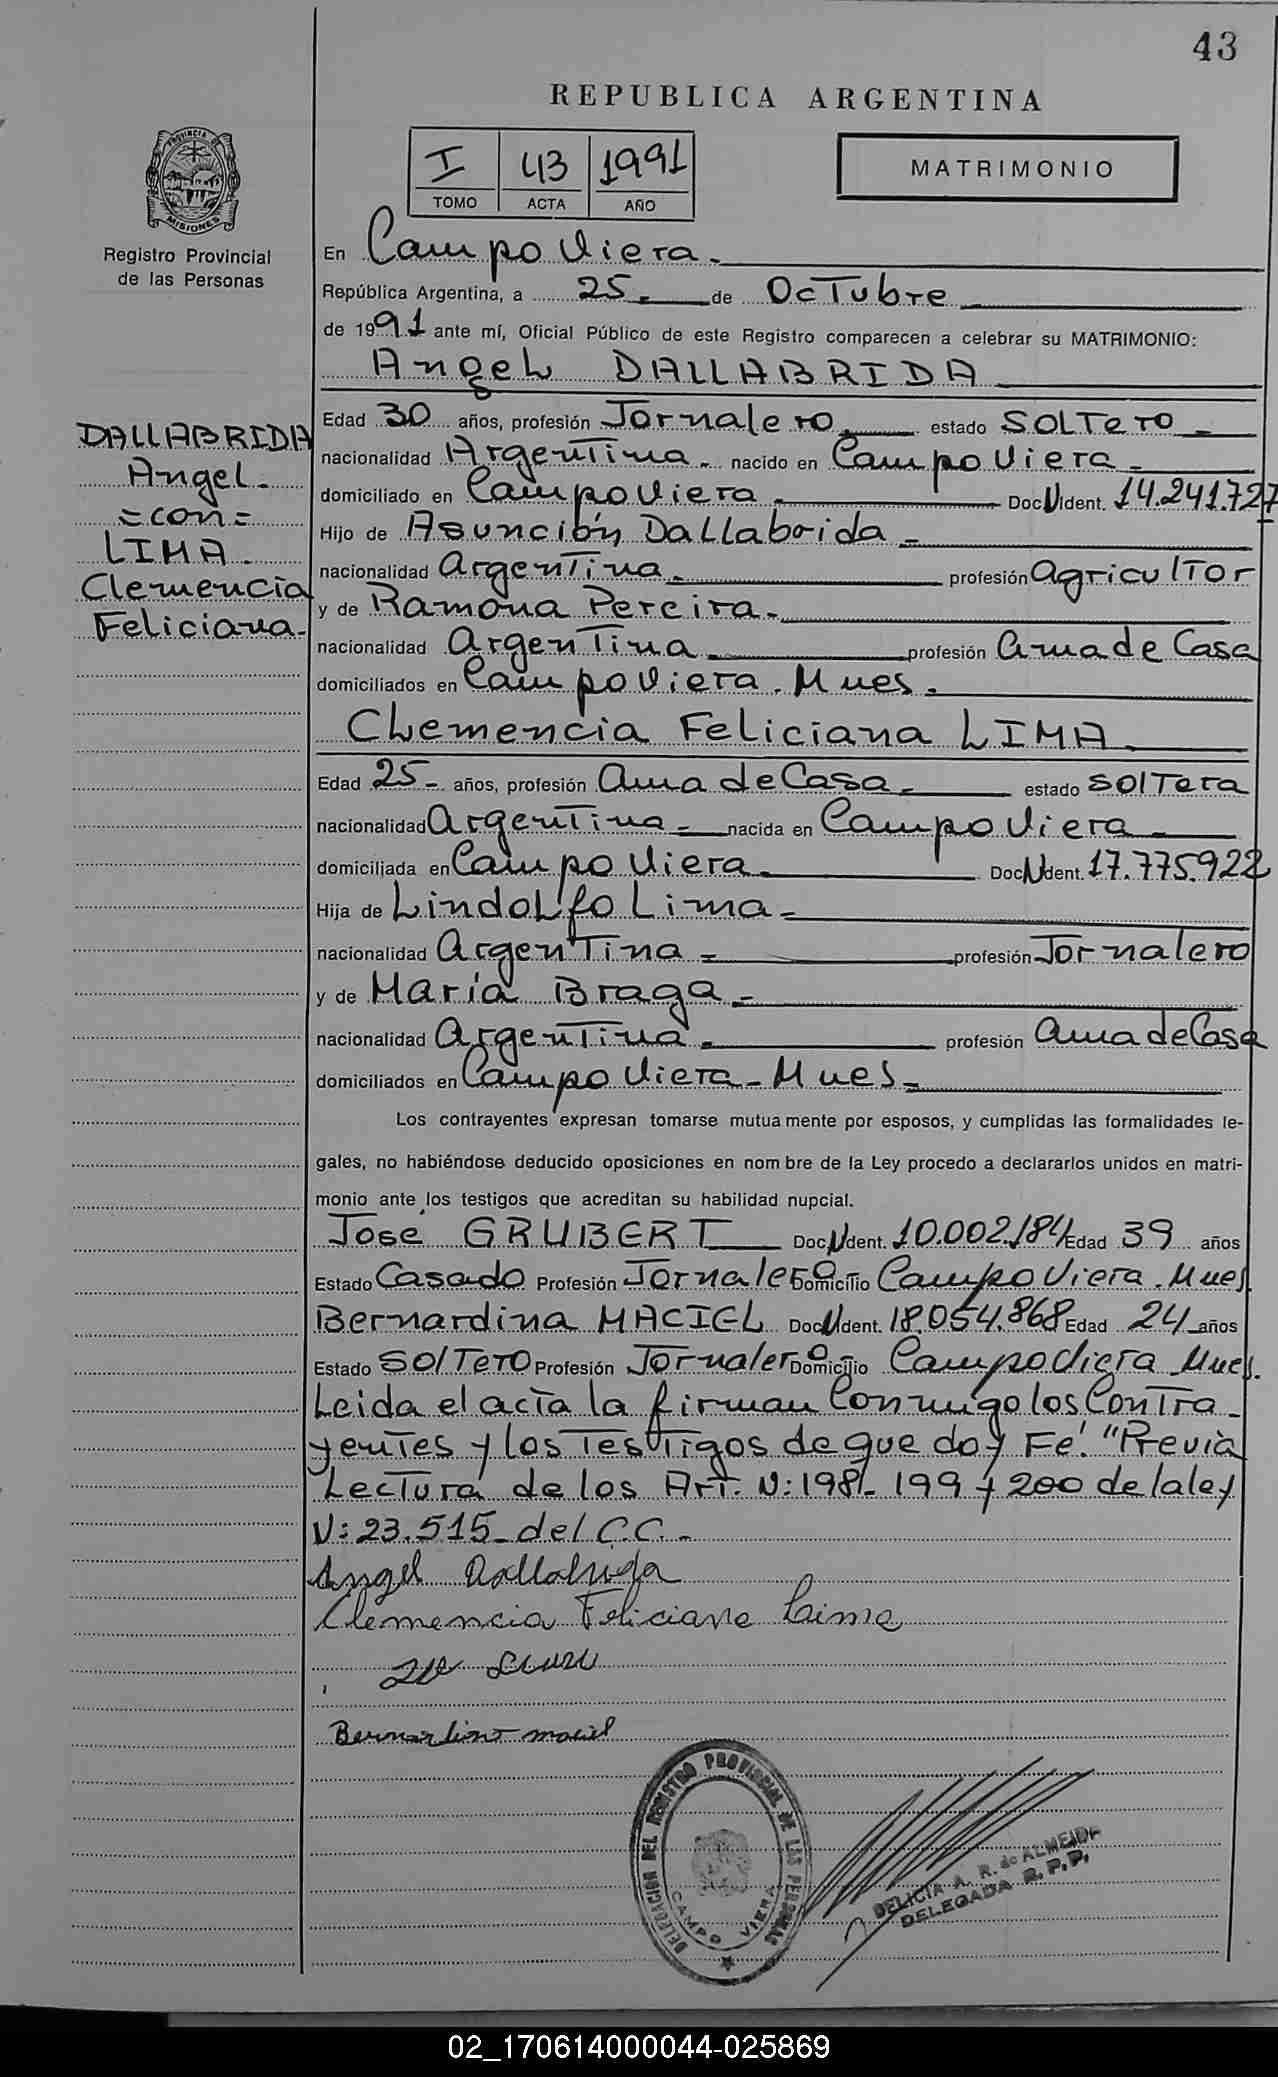 43
REPUBLICA ARGENTINA
PROVINCIA DE
MISIONES
I 43 1991
TOMO ACTA AÑO
MATRIMONIO
Registro Provincial
de las Personas
En Campo Viera.
República Argentina, a 25 de Octubre
de 1991 ante mí, Oficial Público de este Registro comparecen a celebrar su MATRIMONIO:
Angel DALLABRIDA
DALLABRIDA
Angel.
=con=
LIMA.
Clemencia
Feliciana.
Edad 30 años, profesión Jornalero estado SOLTero
nacionalidad Argentina nacido en Campo Viera
domiciliado en Campo Viera Doc N Ident. 14.241.727
Hijo de Asunción Dallabrida
nacionalidad Argentina profesión Agricultor
y de Ramona Pereira
nacionalidad Argentina profesión ama de Casa
domiciliados en Campo Viera. Mnes.
Clemencia Feliciana LIMA
Edad 25 años, profesión Ama de Casa estado SOLTera
nacionalidad Argentina nacida en Campo Viera
domiciliada en Campo Viera Doc N Ident. 17.775.922
Hija de Lindolfo Lima
nacionalidad Argentina profesión Jornalero
y de María Braga
nacionalidad Argentina profesión Ama de Casa
domiciliados en Campo Viera - Mnes
Los contrayentes expresan tomarse mutuamente por esposos, y cumplidas las formalidades le-
gales, no habiéndose deducido oposiciones en nombre de la Ley procedo a declararlos unidos en matri-
monio ante los testigos que acreditan su habilidad nupcial.
José GRUBERT Doc N Ident. 10.002.184 Edad 39 años
Estado Casado Profesión Jornalero Domicilio Campo Viera. Mnes
Bernardina MACIEL Doc N Ident. 18.054.868 Edad 24 años
Estado SOLTero Profesión Jornalero Domicilio Campo Viera Mnes.
Leida el acta la firman Conmigo los Contra
yentes y los Testigos de que doy Fé. "Previa
Lectura de los Art. N: 198 - 199 y 200 de la ley
N: 23.515 del C.C.
Angel Dallabrida
Clemencia Feliciana Lima
Bernardino maciel
DELEGACION DEL REGISTRO PROVINCIAL DE LAS PERSONAS
CAMPO VIERA
DELICIA A. R. de ALMEIDA
DELEGADA R.P.P.
02_170614000044-025869